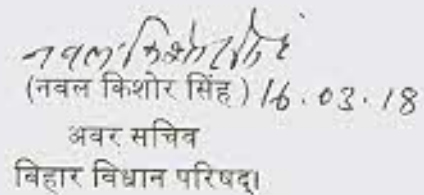 नवल किशोर सिंह
(नवल किशोर सिंह) 16.03.18
अवर सचिव
बिहार विधान परिषद्।